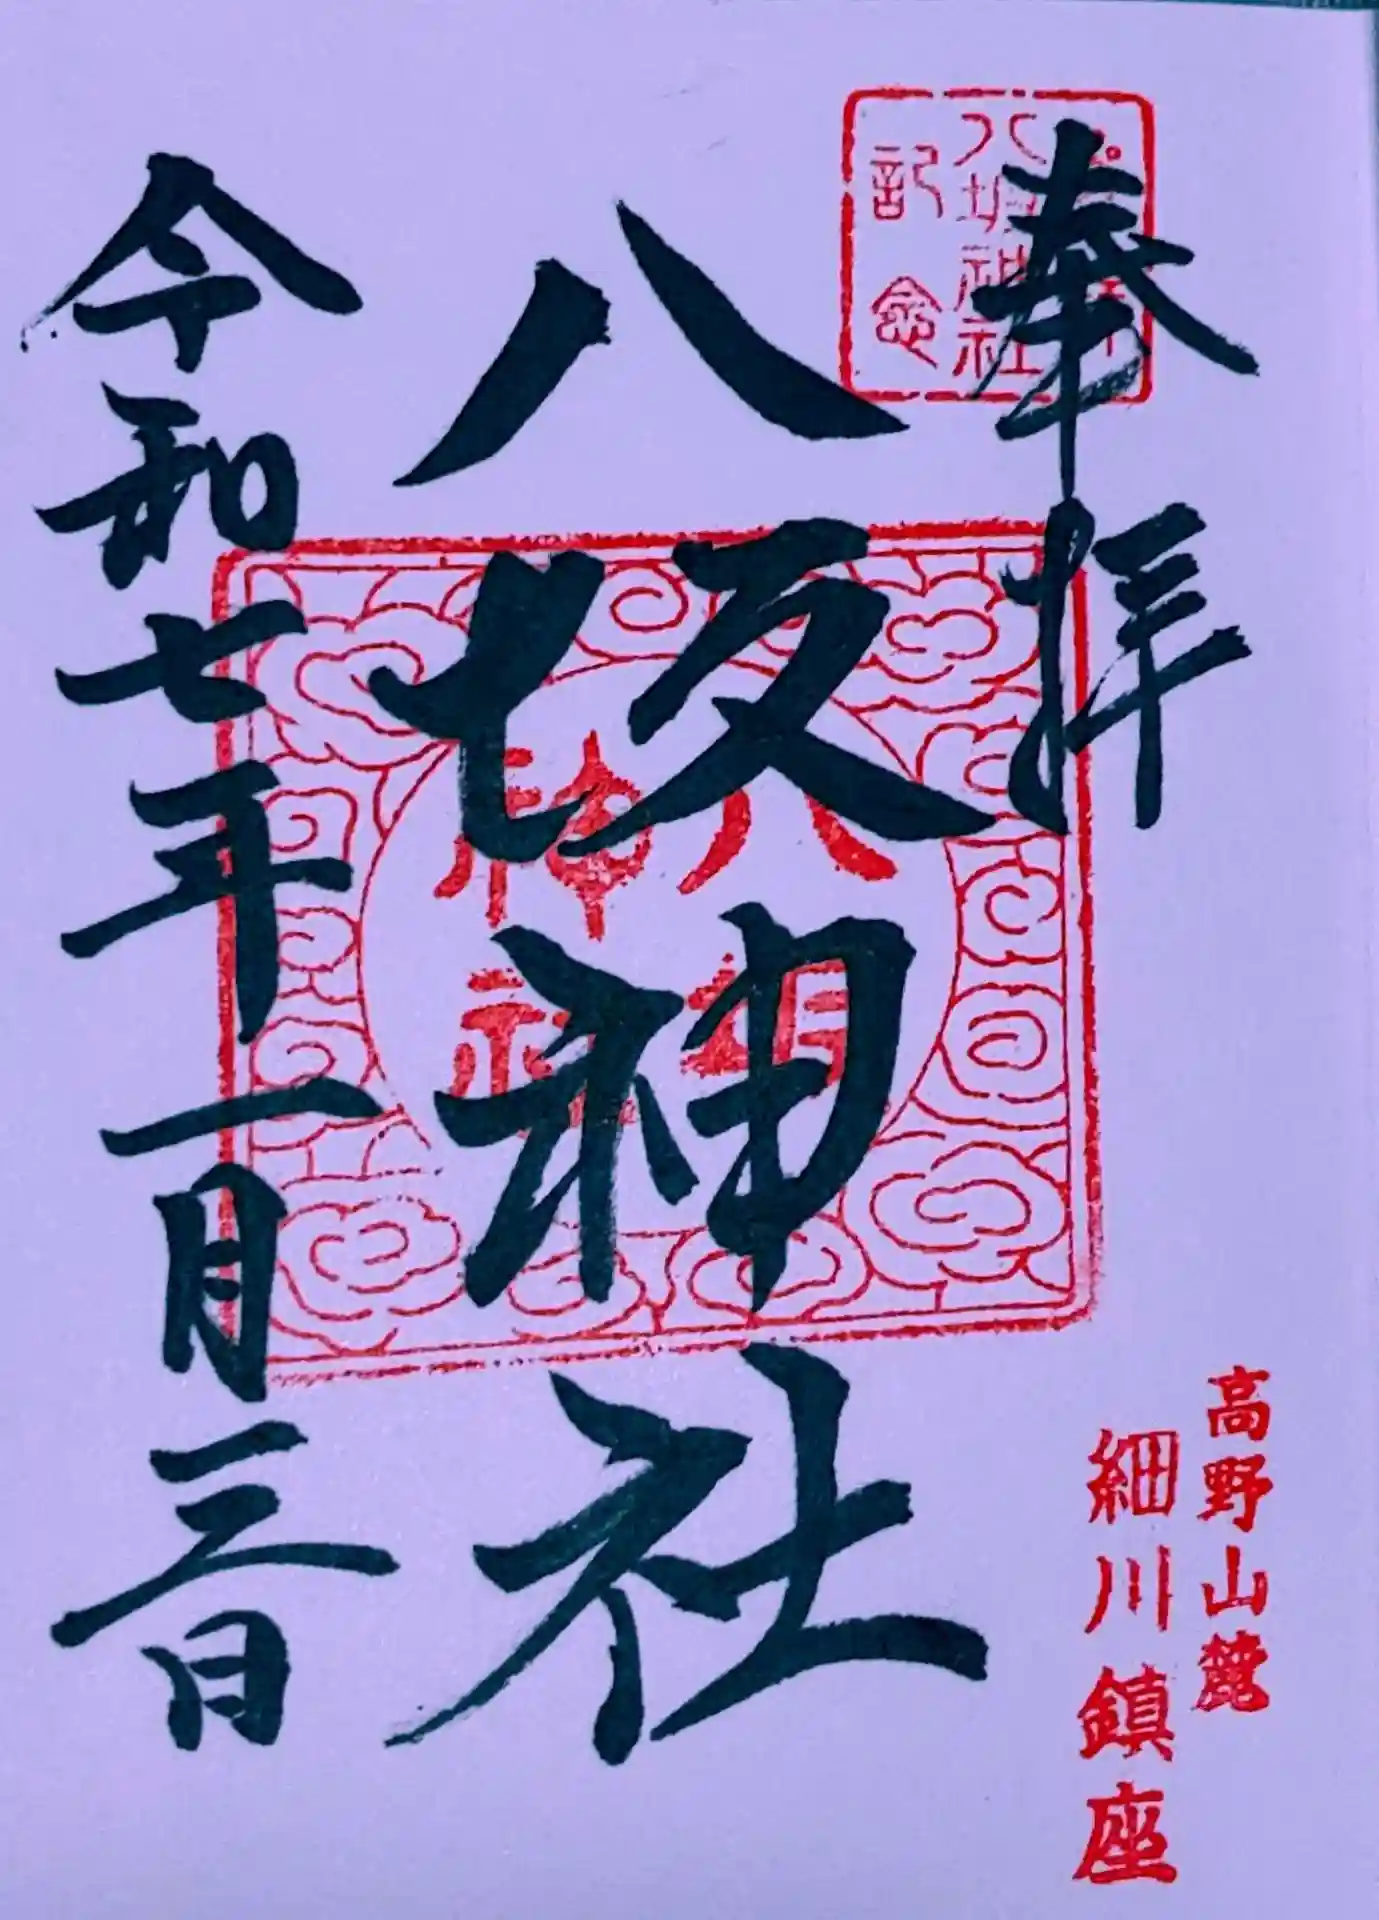 奉拝
八坂神社
記念
八坂神社
八坂
神社
令和七年一月三日
高野山麓
細川鎮座